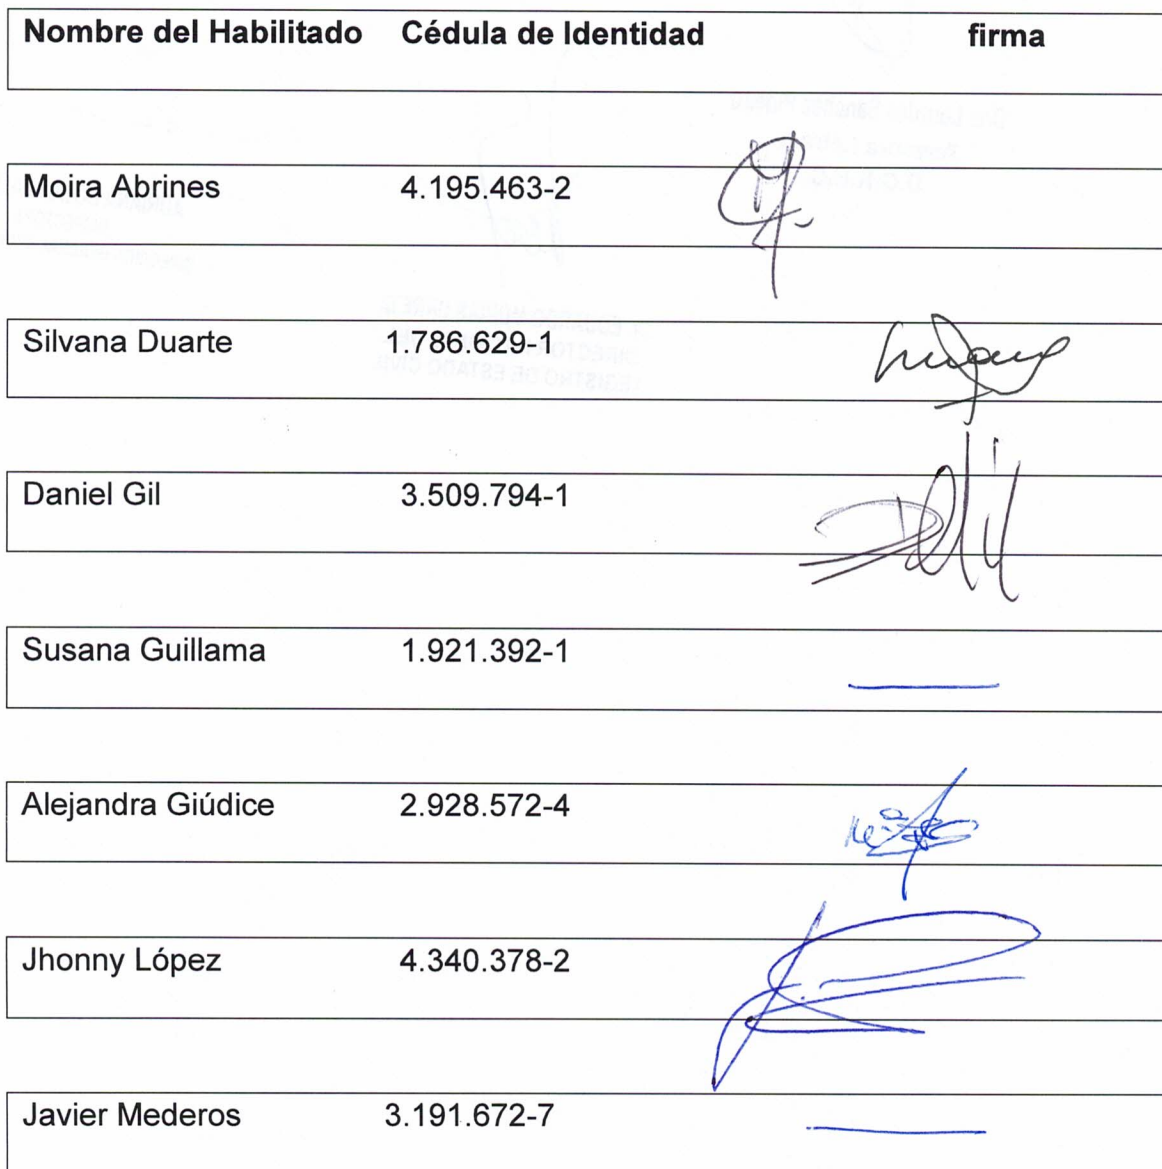 Nombre del Habilitado Cédula de Identidad firma
Moira Abrines 4.195.463-2
Silvana Duarte 1.786.629-1
Daniel Gil 3.509.794-1
Susana Guillama 1.921.392-1
Alejandra Giúdice 2.928.572-4
Jhonny López 4.340.378-2
Javier Mederos 3.191.672-7